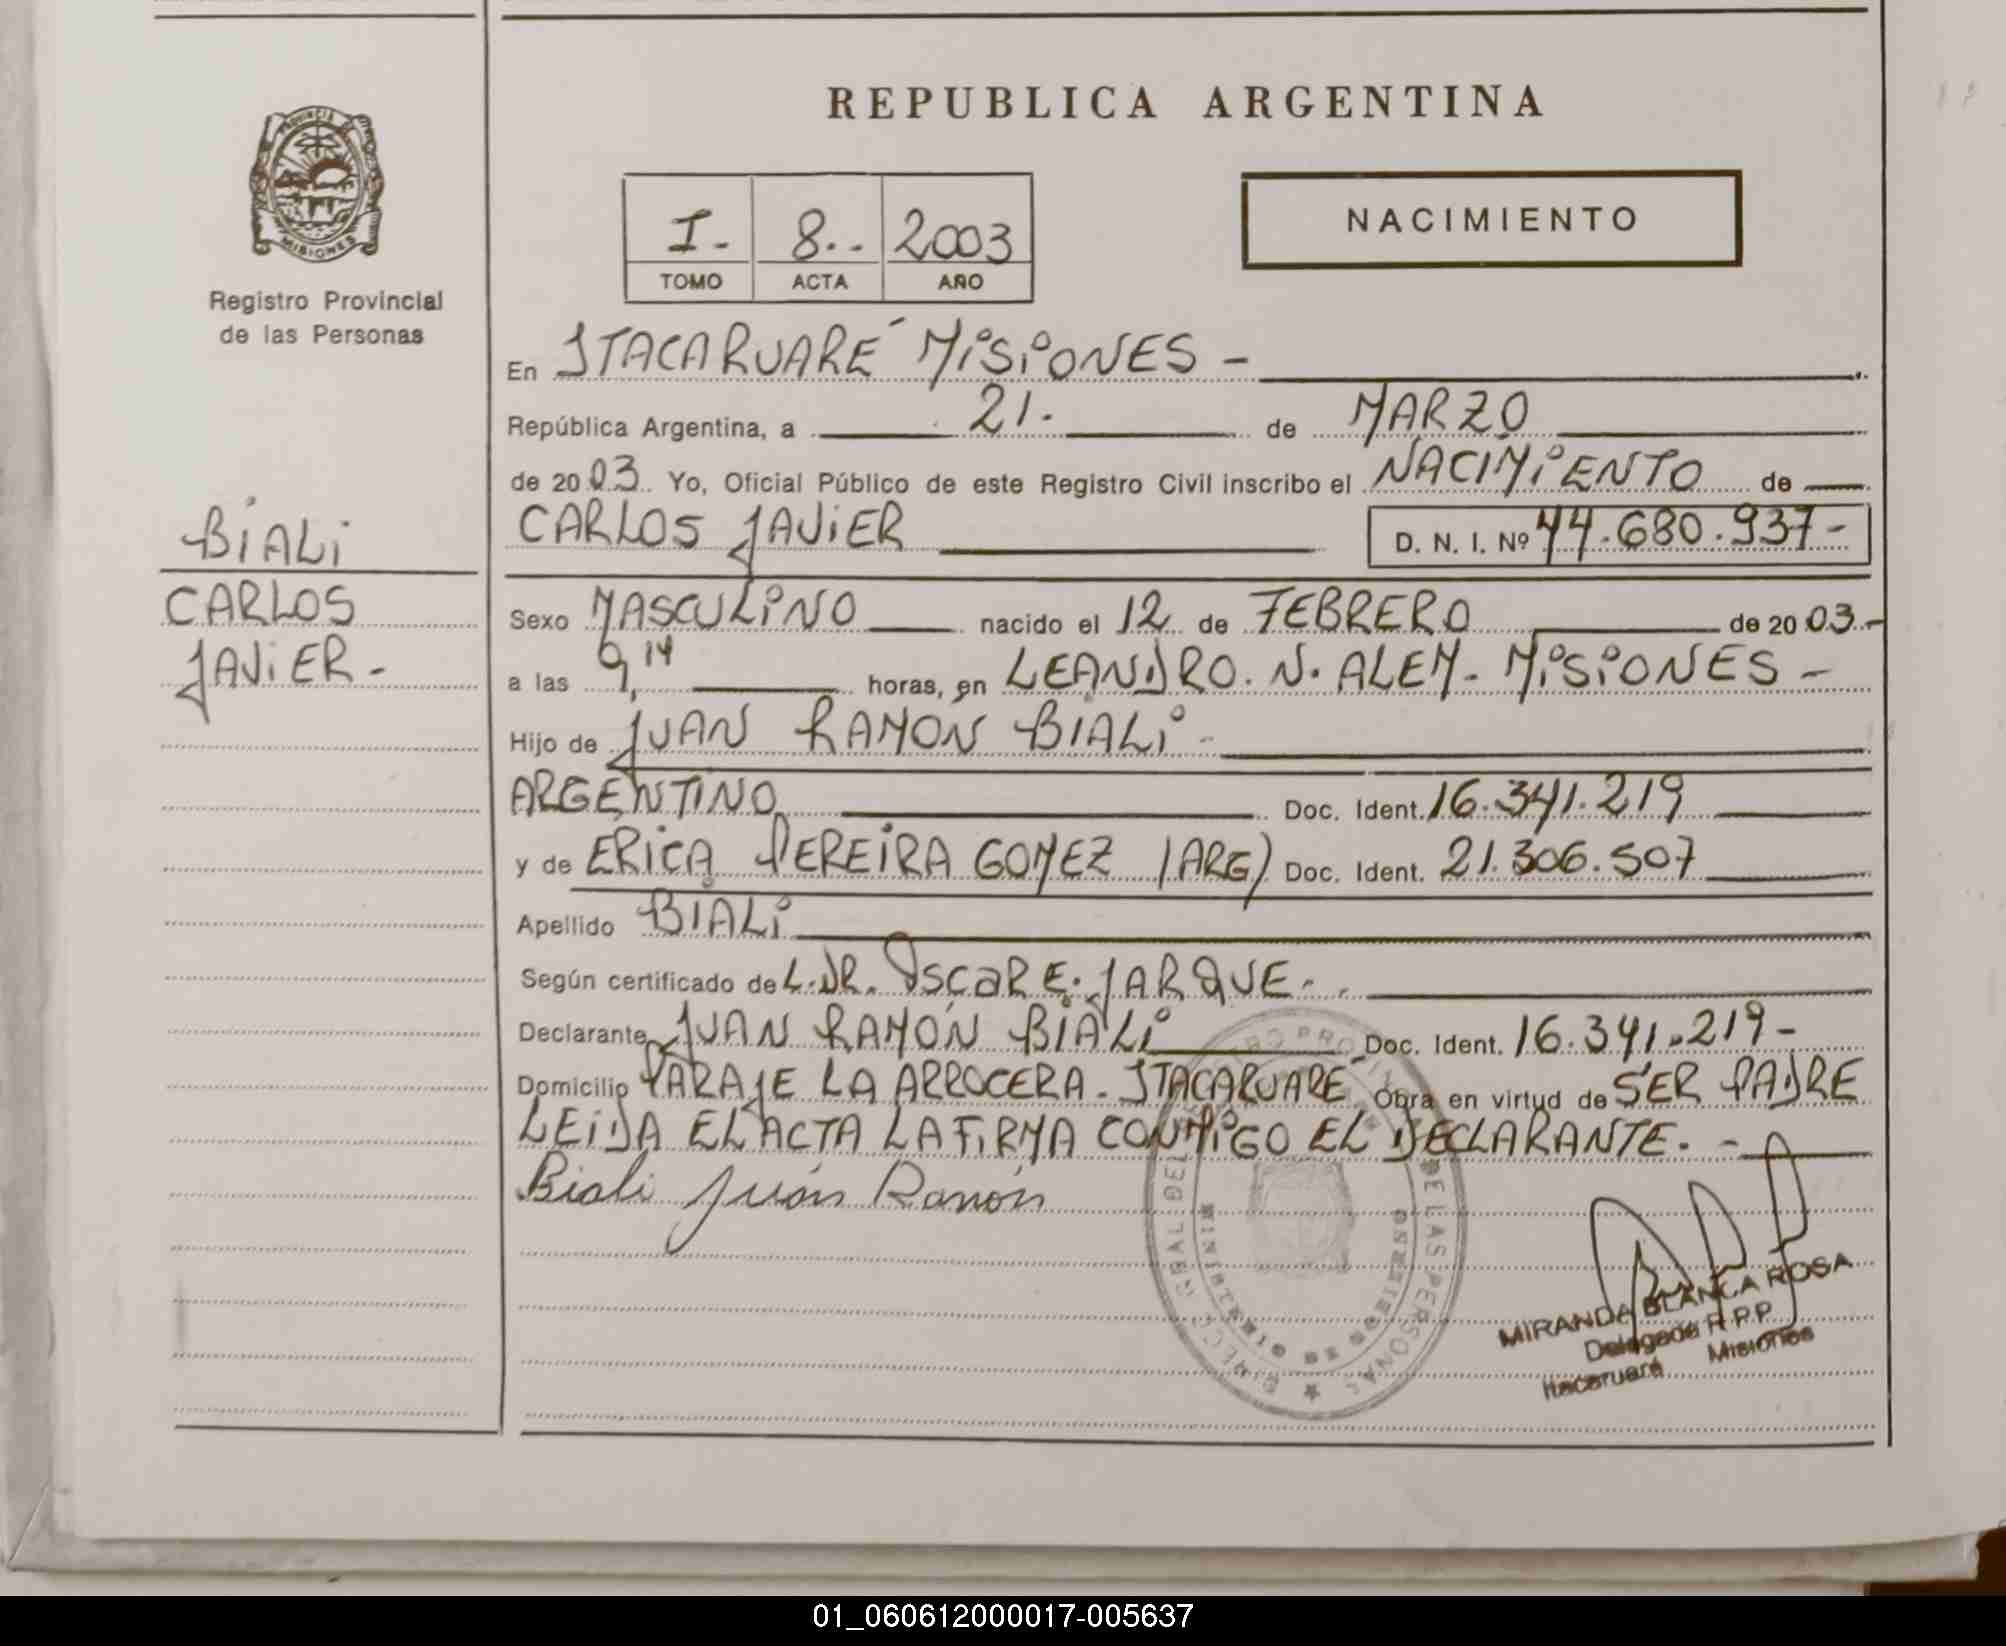 REPUBLICA ARGENTINA
PROVINCIA DE
MISIONES
Registro Provincial
de las Personas
I- 8.. 2003
TOMO ACTA AÑO
NACIMIENTO
En ITACARUARÉ MISIONES -
República Argentina, a 21. de MARZO
de 2003. Yo, Oficial Público de este Registro Civil inscribo el NACIMIENTO de
CARLOS JAVIER D. N. I. Nº 44.680.937-
BIALI
CARLOS
JAVIER-
Sexo MASCULINO nacido el 12 de FEBRERO de 2003.-
a las 9,14 horas, en LEANDRO. N. ALEM- MISIONES -
Hijo de JUAN RAMÓN BIALI -
ARGENTINO Doc. Ident. 16.341.219
y de ERICA PEREIRA GOMEZ (ARG) Doc. Ident. 21.306.507
Apellido BIALI
Según certificado de L.DR. OSCAR E. JARQUE. .
Declarante JUAN RAMÓN BIALI Doc. Ident. 16.341.219-
Domicilio PARAJE LA ARROCERA - ITACARUARÉ Obra en virtud de SER PADRE
LEIDA EL ACTA LA FIRMA CONMIGO EL DECLARANTE. -
Biali Juán Ramón
DE LAS PERSONAS
MINISTERIO DE GOBIERNO
MIRANDA BLANCA ROSA
Delegada R.P.P.
Itacaruaré Misiones
01_060612000017-005637